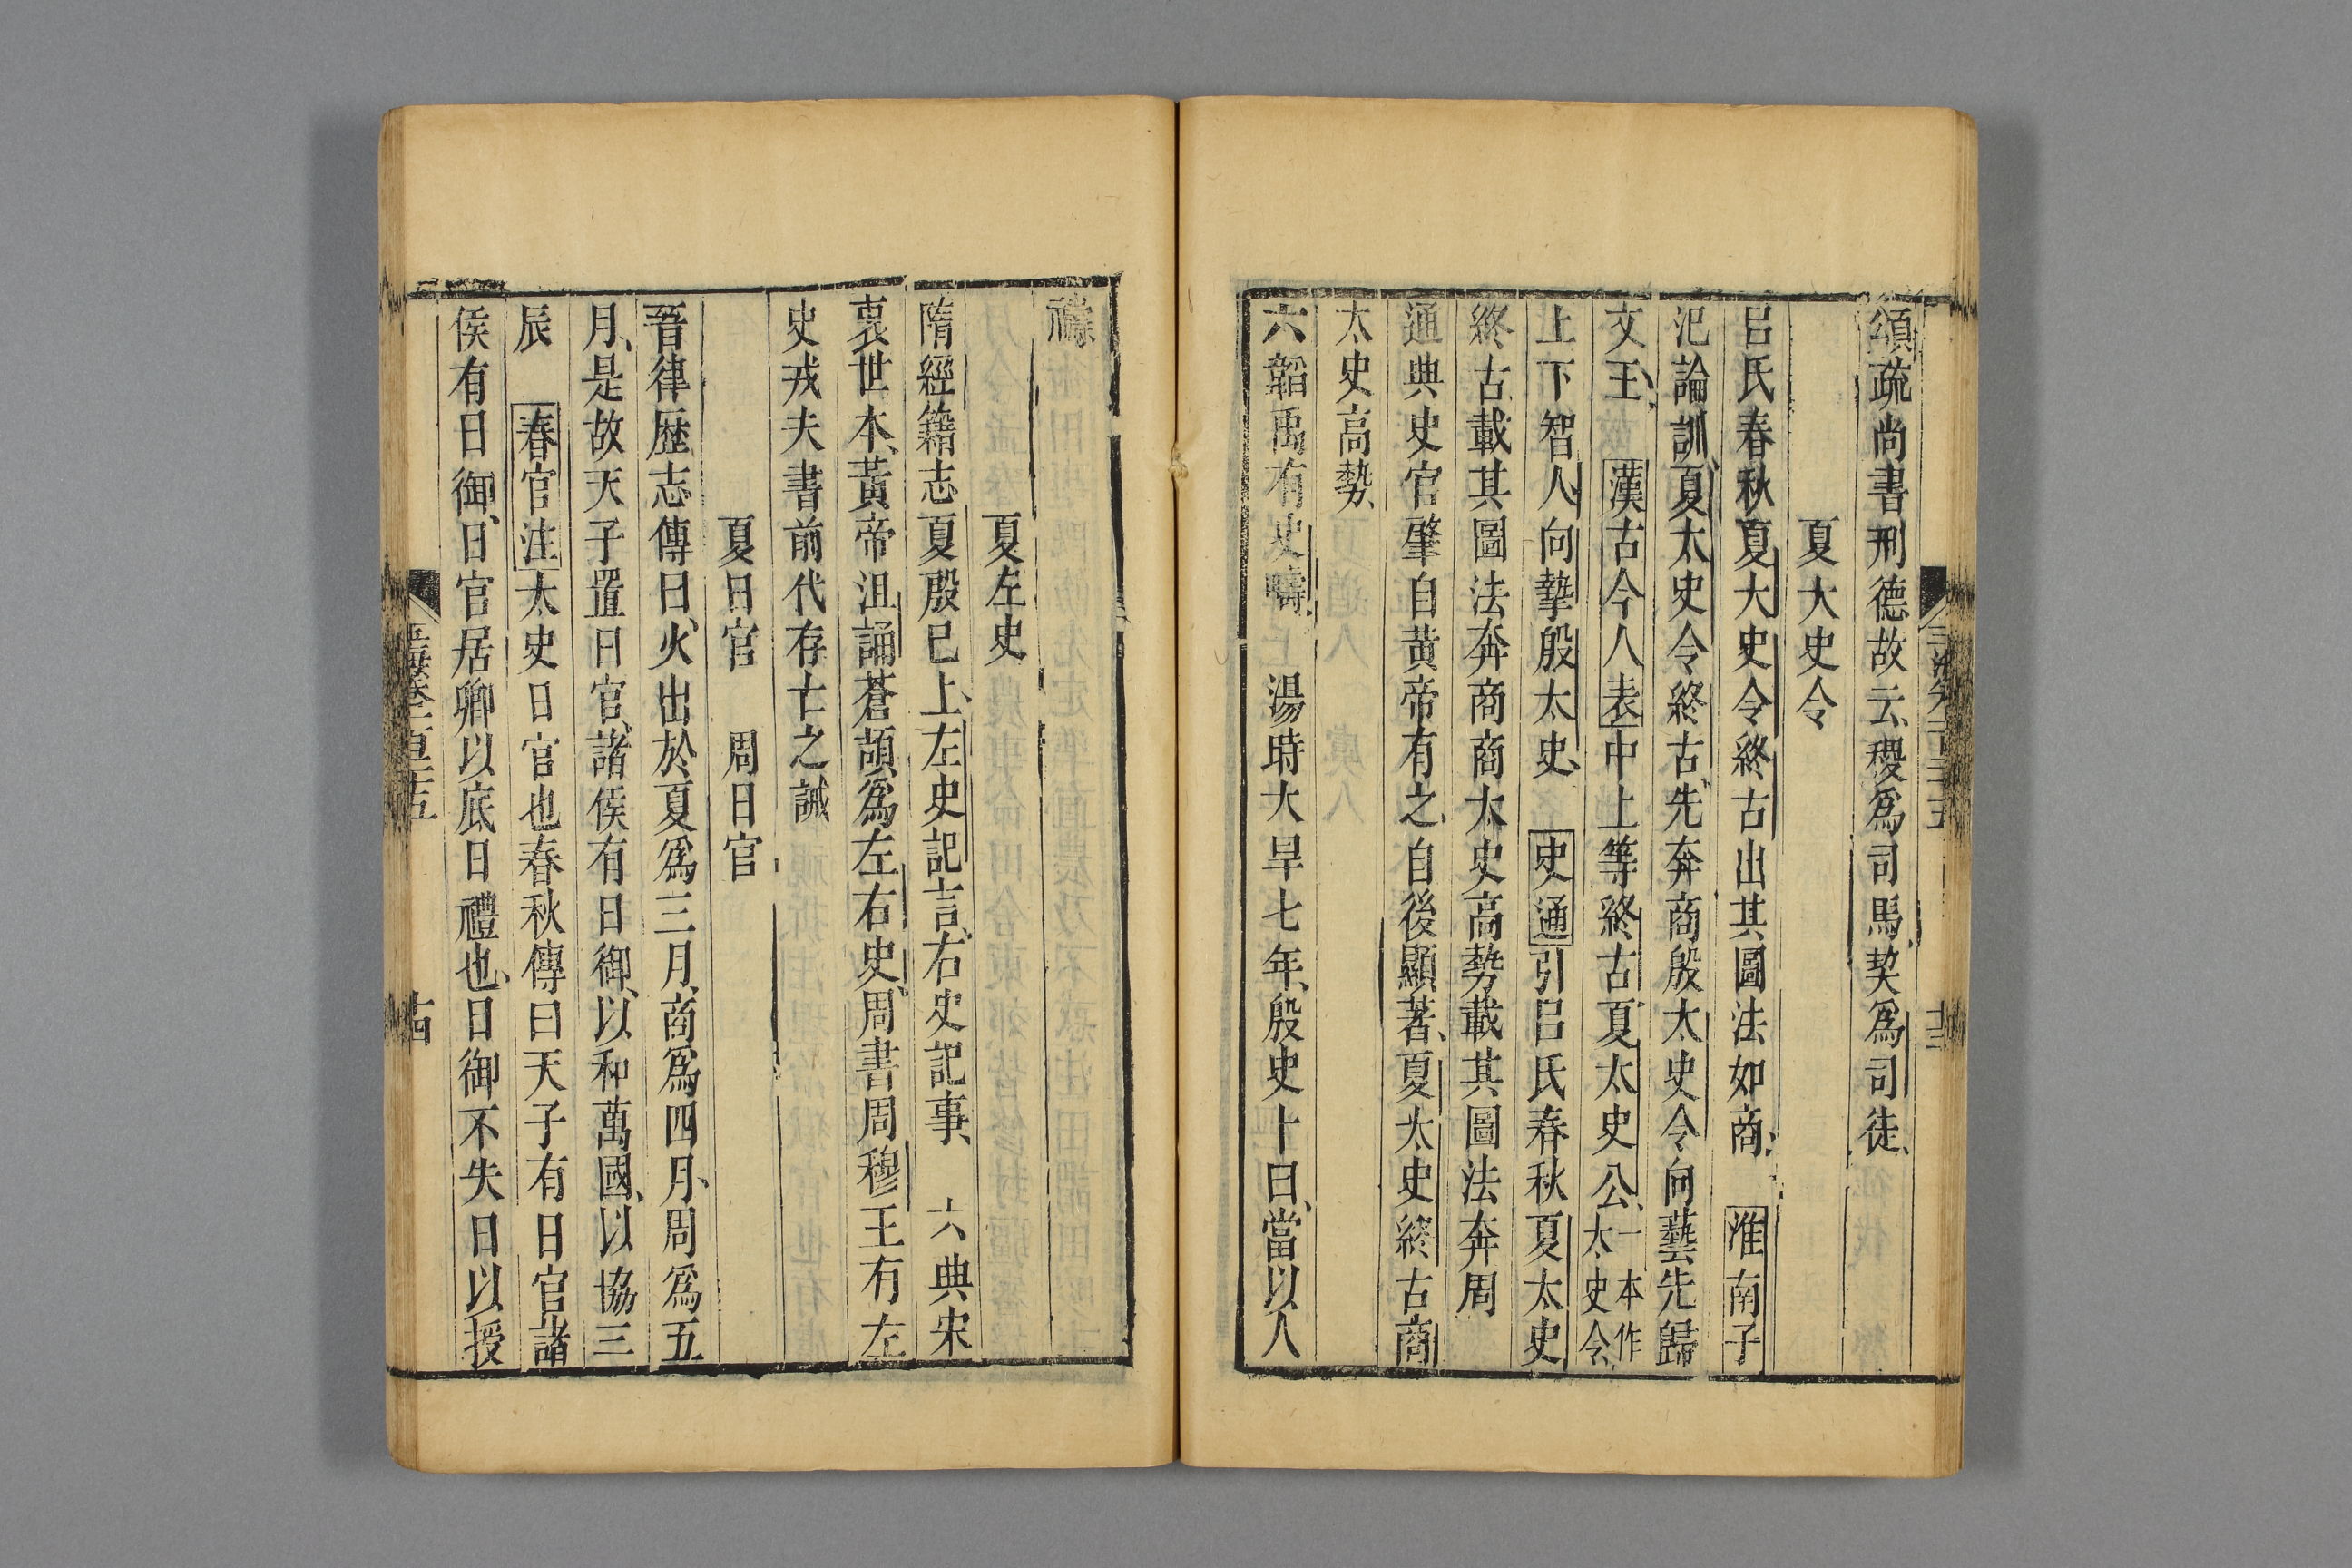 頌疏尚書刑德故云稷爲司馬契爲司徒
夏大史令
呂氏春秋夏大史令終古出其圖法如商 淮南子
氾論訓夏太史令終古先奔商殷太史令向藝先歸
文王 漢古今人表中上等終古夏太史公一本作太史令
上下智人向摯殷太史 史通引呂氏春秋夏太史
終古載其圖法奔商商太史高勢載其圖法奔周
通典史官肇自黄帝有之自後顯著夏太史終古商
太史高勢
六韜禹有史疇 湯時大旱七年殷史卜曰當以人
禱
夏左史
隋經籍志夏殷已上左史記言右史記事 六典宋
衷世本黃帝沮誦蒼頡爲左右史周書周穆王有左
史戎夫書前代存亡之誡
夏日官 周日官
晉律歷志傳曰火出於夏爲三月商爲四月周爲五
月是故天子置日官諸侯有日御以和萬國以協三
辰 春官注太史日官也春秋傳曰天子有日官諸
侯有日御日官居卿以底日禮也日御不失日以授